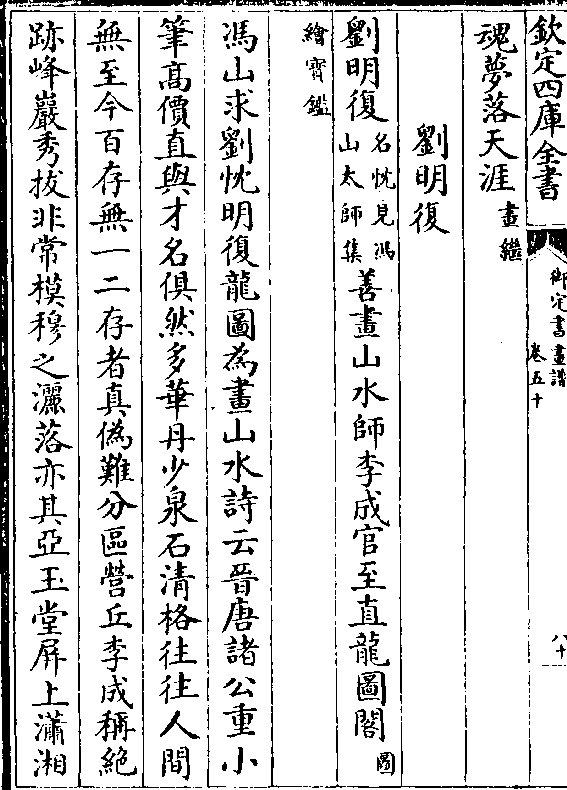 欽定四庫全書
御定書畫譜
卷五十
八十
魂夢落天涯畫繼
劉明復
劉明復名忱見馮山太師集善畫山水師李成官至直龍圖閣圖
繪寶鑑
馮山求劉忱明復龍圖為畫山水詩云晉唐諸公重小
筆高價直與才名俱然多華丹少泉石清格往往人間
無至今百存無一二存者真偽難分區營丘李成稱絶
跡峰巖秀拔非常模穆之灑落亦其亞玉堂屏上瀟湘